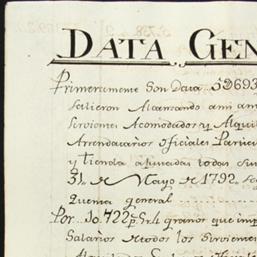 DATA GEN
Primeramente son Data 52693
salieron Alcanzando ami am
Sirvientes Acomodados y Alqui
Arrendatarios oficiales
y tienda ajustadas todas su
31 de Mayo de 1792
Quenta general
Por 10.722 p. granos que imp
Salarios de todos los Sirviente